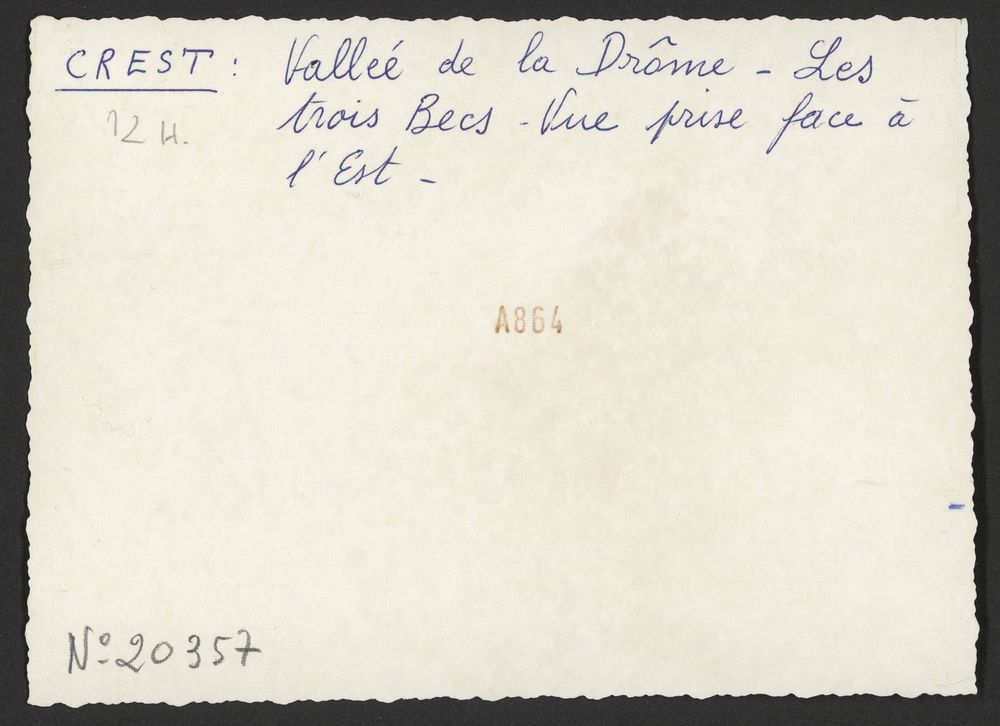 CREST : Vallée de la Drôme - Les
trois Becs - Vue prise face à
l'Est -
12 H.
A864
N° 20357